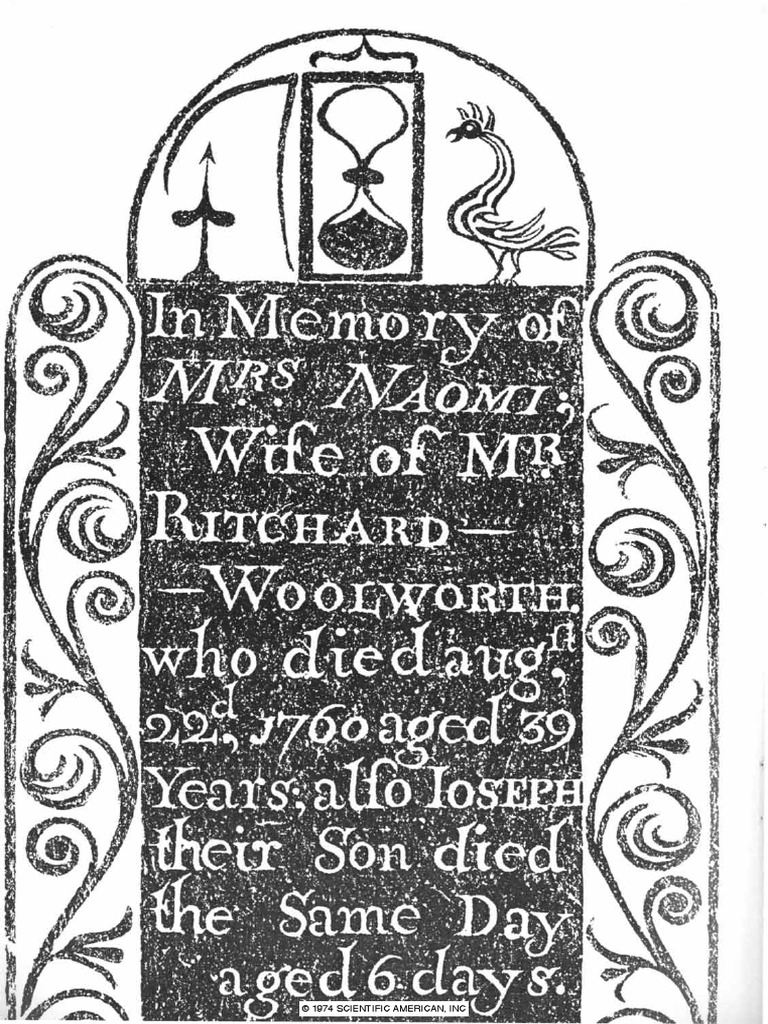 In Memory of
M.RS NAOMI;
Wife of M.R
RITCHARD —
— WOOLWORTH.
who died aug,ſt
22d, 1760 aged 39
Years; alſo IOSEPH
their Son died
the Same Day
aged 6 days.
© 1974 SCIENTIFIC AMERICAN, INC